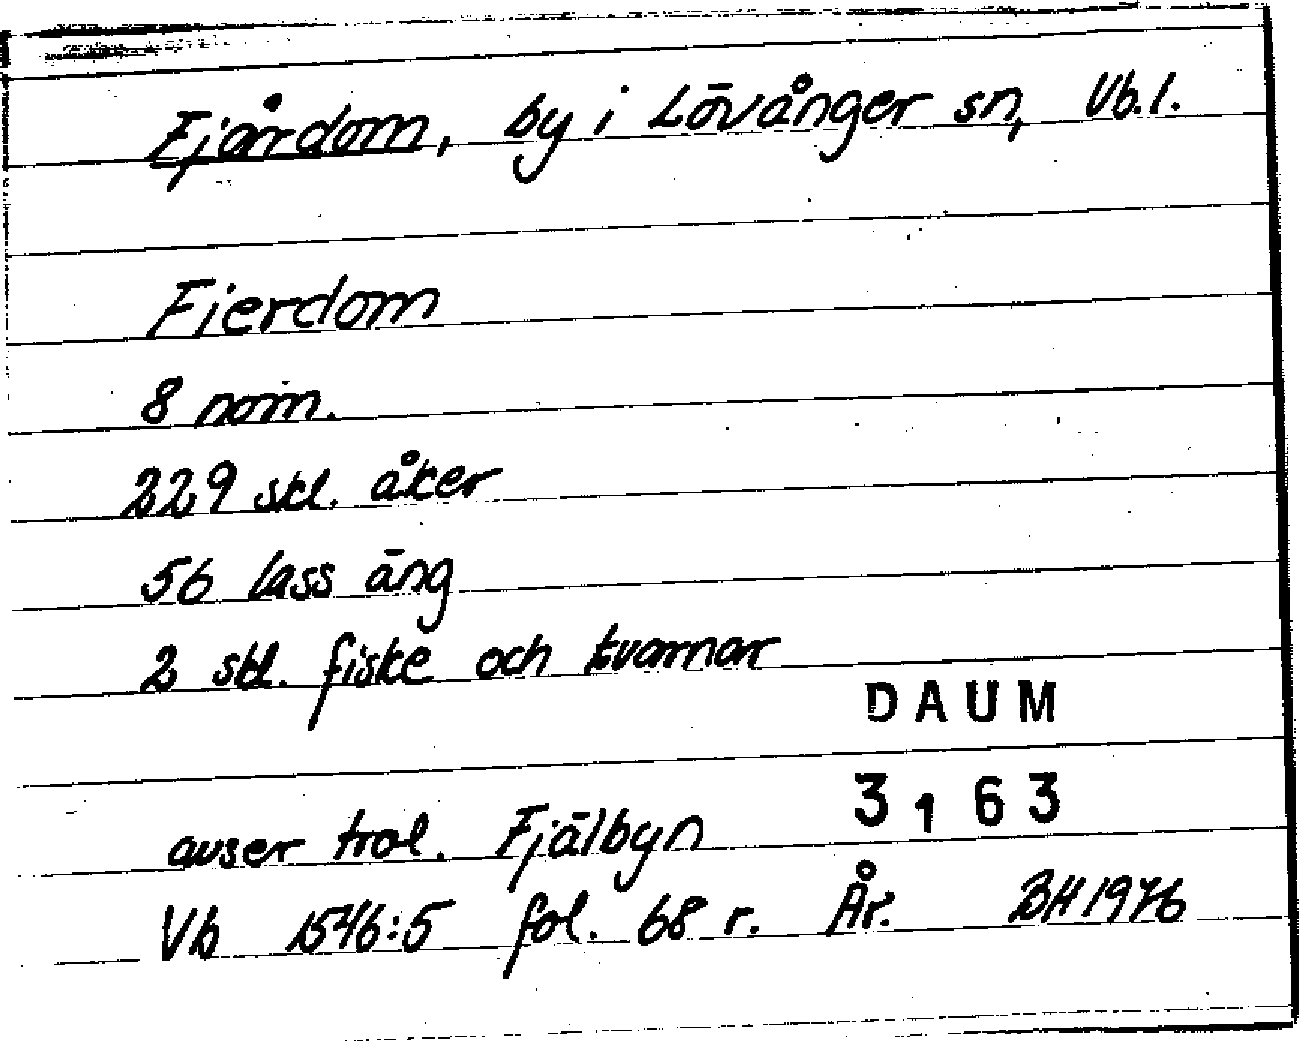 Fjårdom, by i Lövånger sn, Vb.l.
Fierdom
8 nom.
229 skl. åker
56 lass äng
2 skl. fiske och kvarnar
DAUM
avser trol. Fjälbyn 3163
Vb 1546:5 fol. 68 r. År. BH 1976